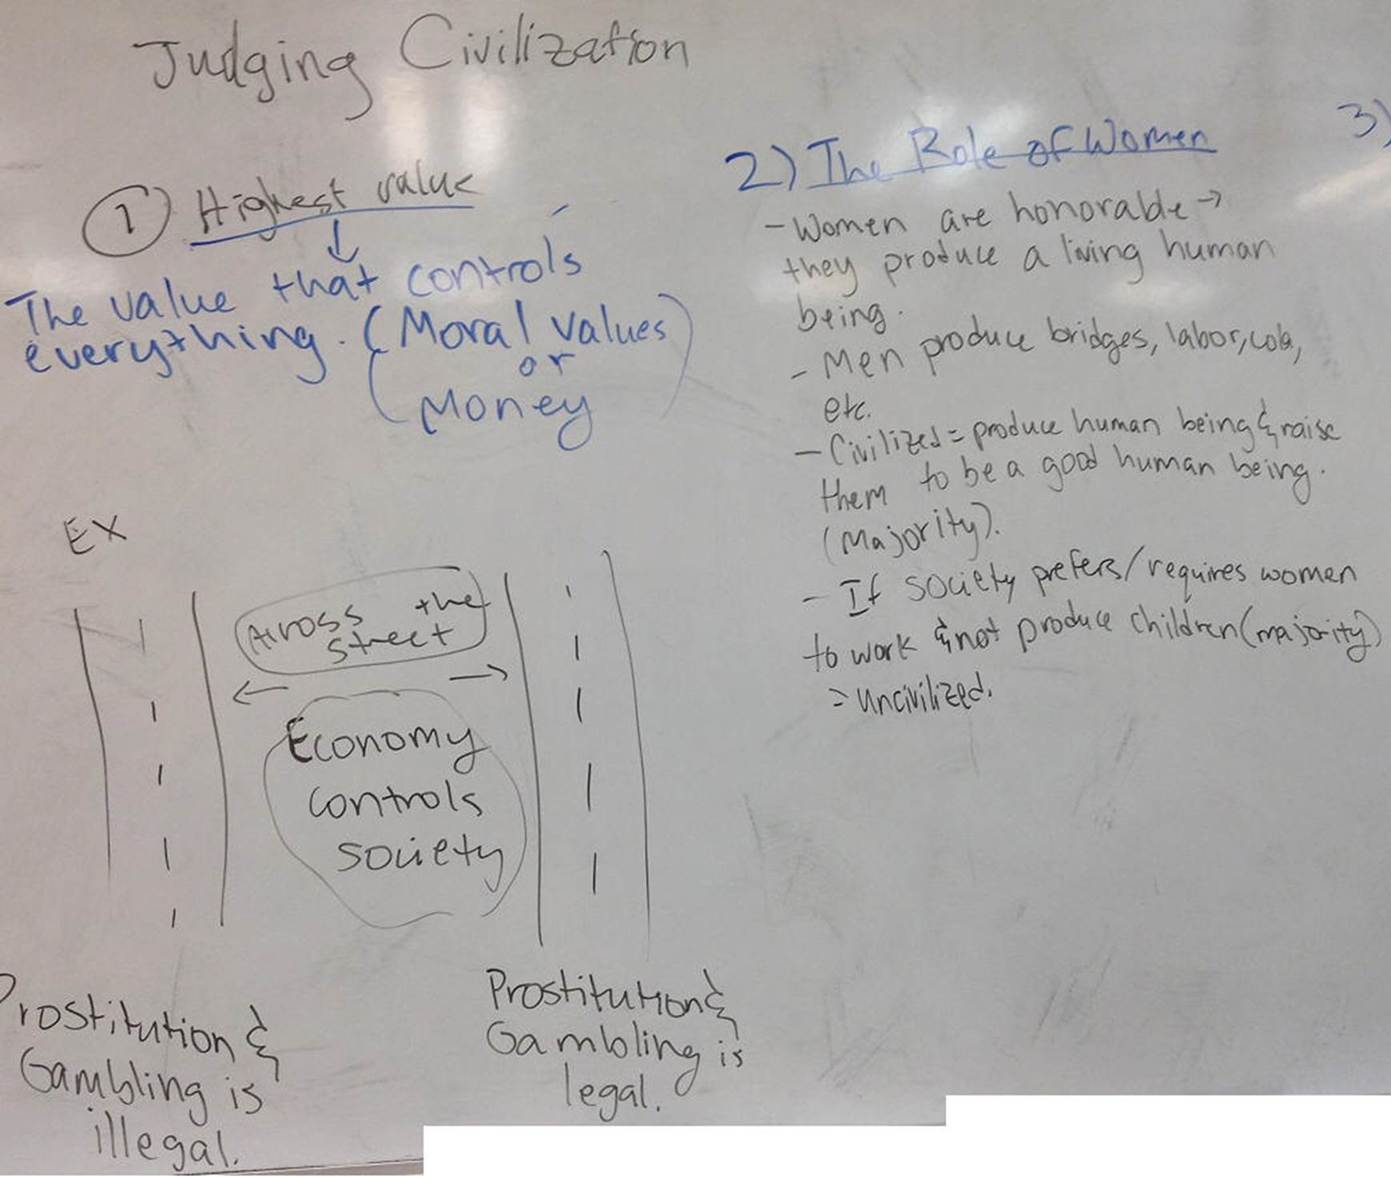 Judging Civilization
1) Highest value
↓
The value that controls
everything. (Moral values)
or
Money
EX
Across the
street
← →
Economy
controls
society
Prostitution &
Gambling is
illegal.
Prostitution &
Gambling is
legal.
2) The Role of Women
- Women are honorable →
they produce a living human
being.
- Men produce bridges, labor,
etc.
- Civilized = produce human being & raise
them to be a good human being.
(majority).
- If society prefers/requires women
to work & not produce children (majority)
= uncivilized.
3)